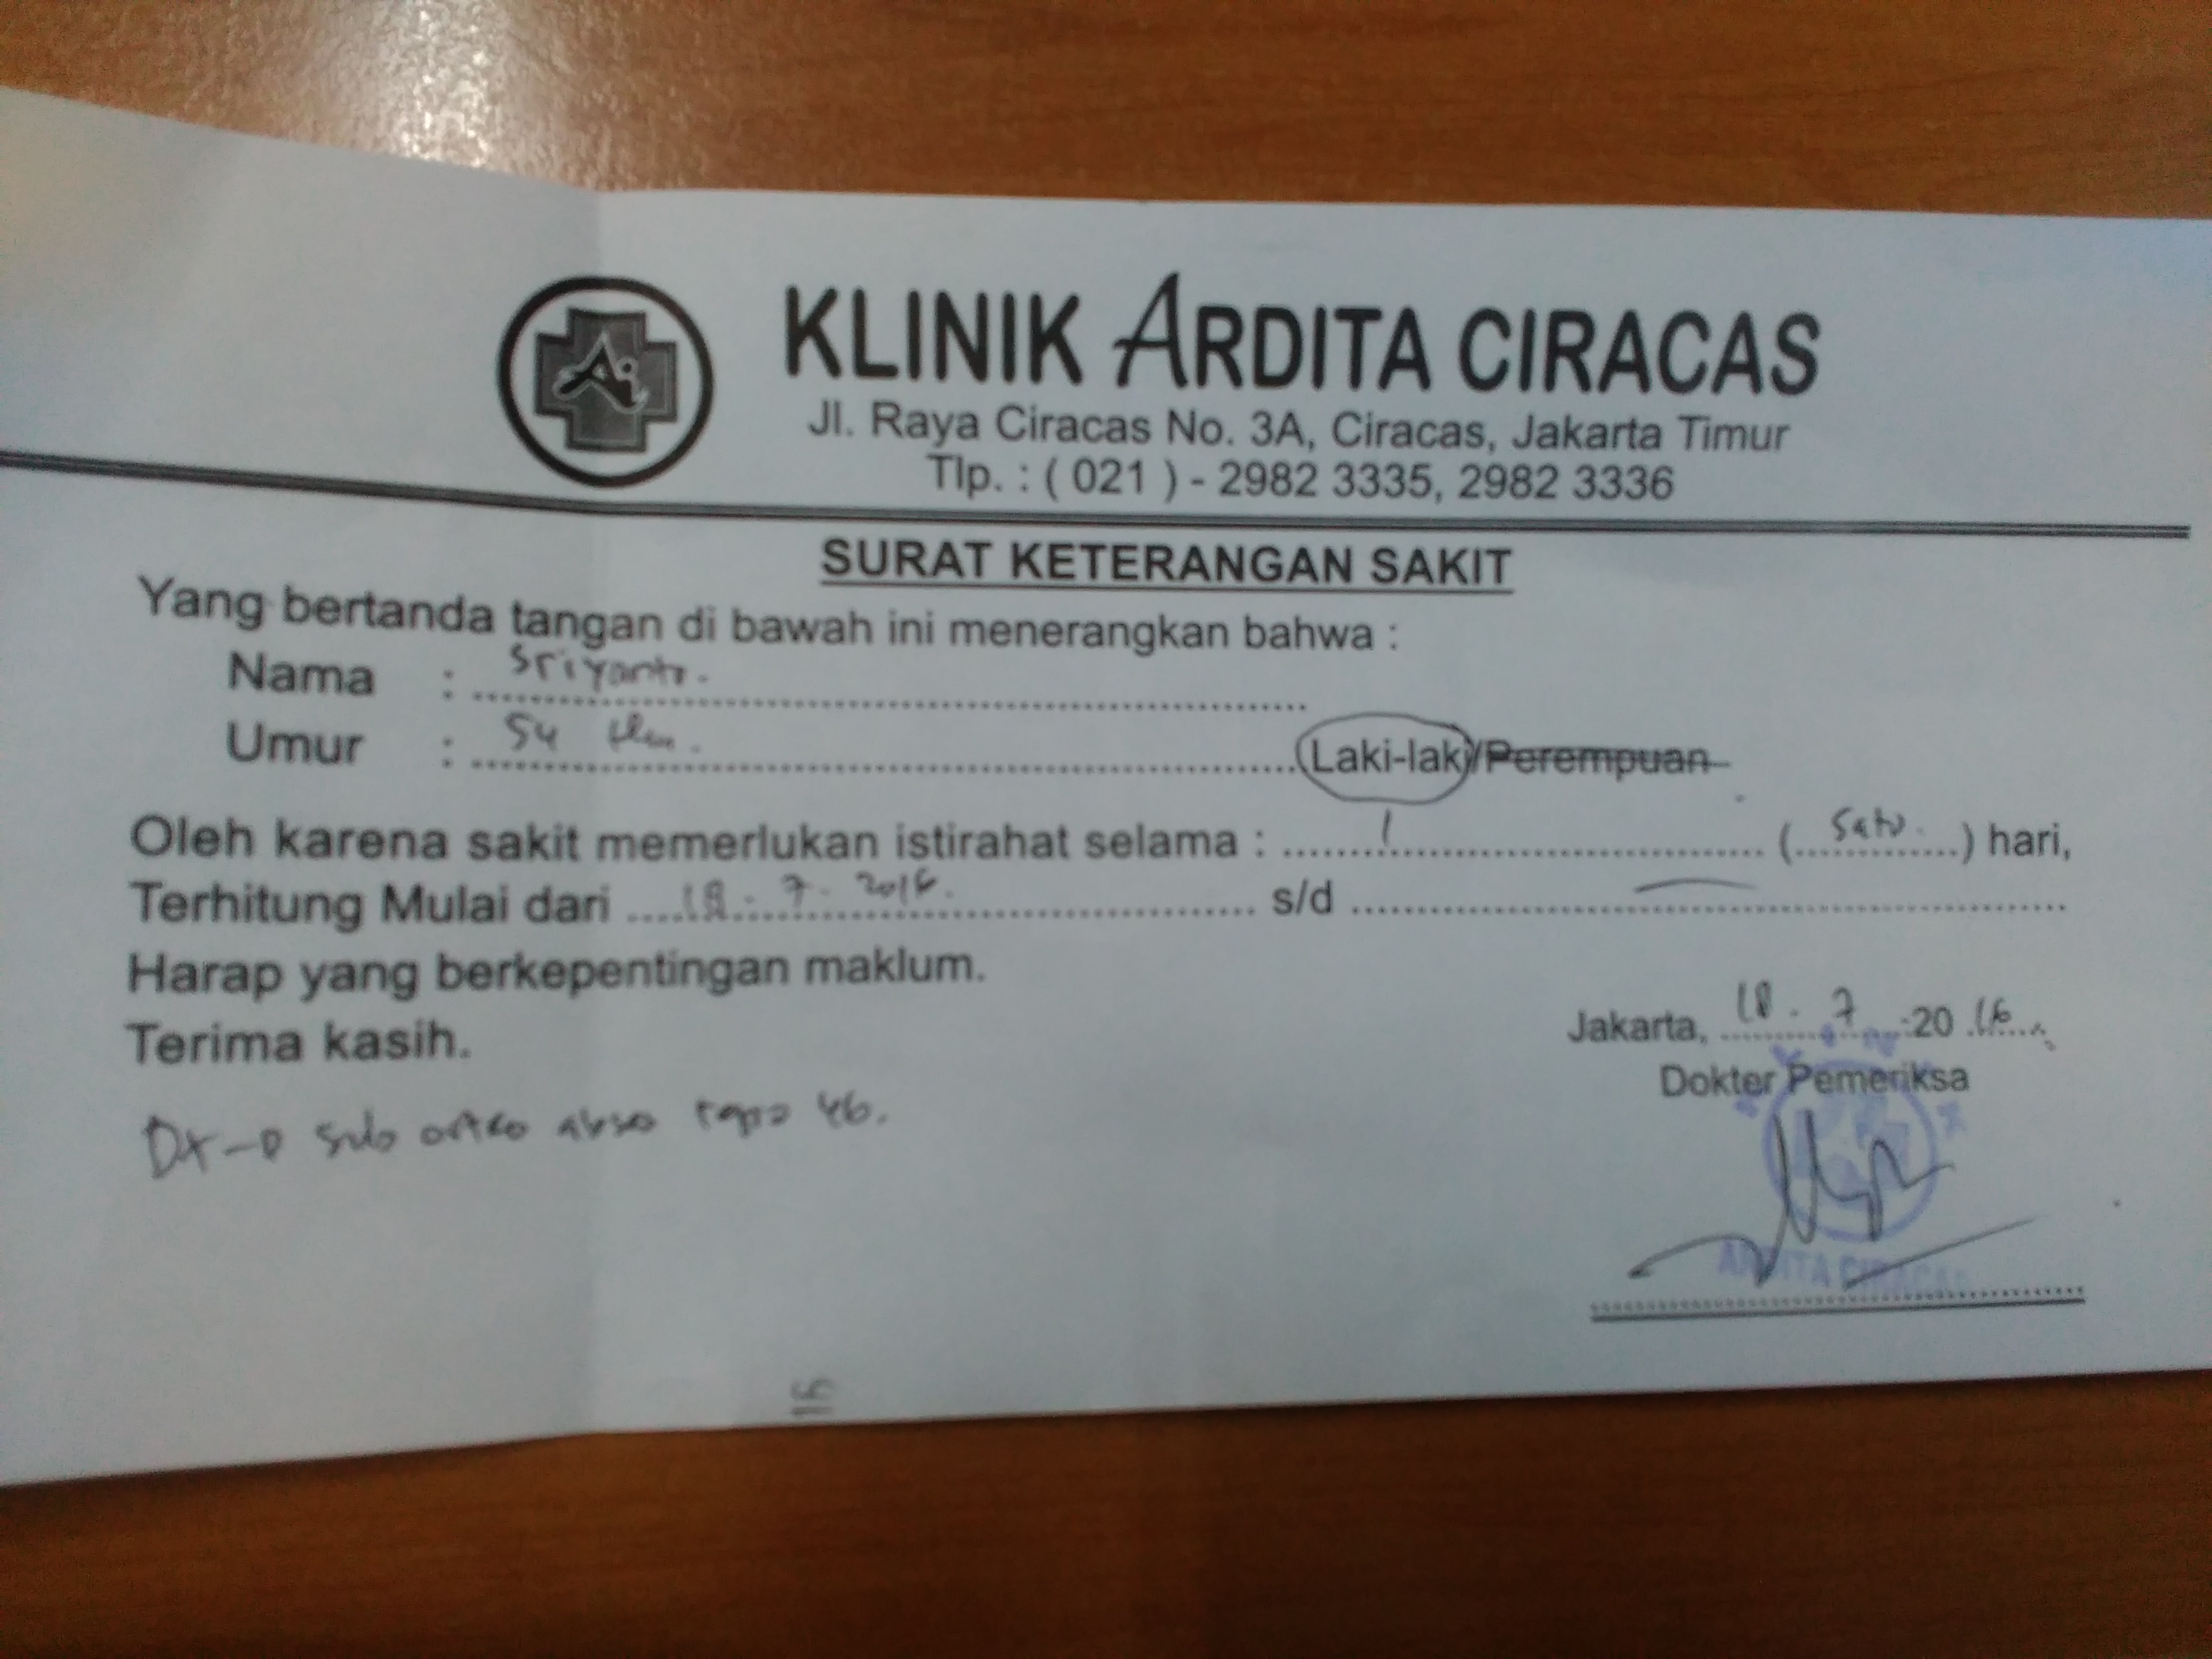 KLINIK ARDITA CIRACAS
Jl. Raya Ciracas No. 3A, Ciracas, Jakarta Timur
Tlp. : ( 021 ) - 2982 3335, 2982 3336
SURAT KETERANGAN SAKIT
Yang bertanda tangan di bawah ini menerangkan bahwa :
Nama : Sriyanto.
Umur : 54 thn. Laki-laki/Perempuan
Oleh karena sakit memerlukan istirahat selama : 1 (Satu.) hari,
Terhitung Mulai dari 18. 7. 2016. s/d —
Harap yang berkepentingan maklum.
Terima kasih.
Jakarta, 18. 7 2016
Dokter Pemeriksa
DX 46.
ARDITA CIRACAS
16